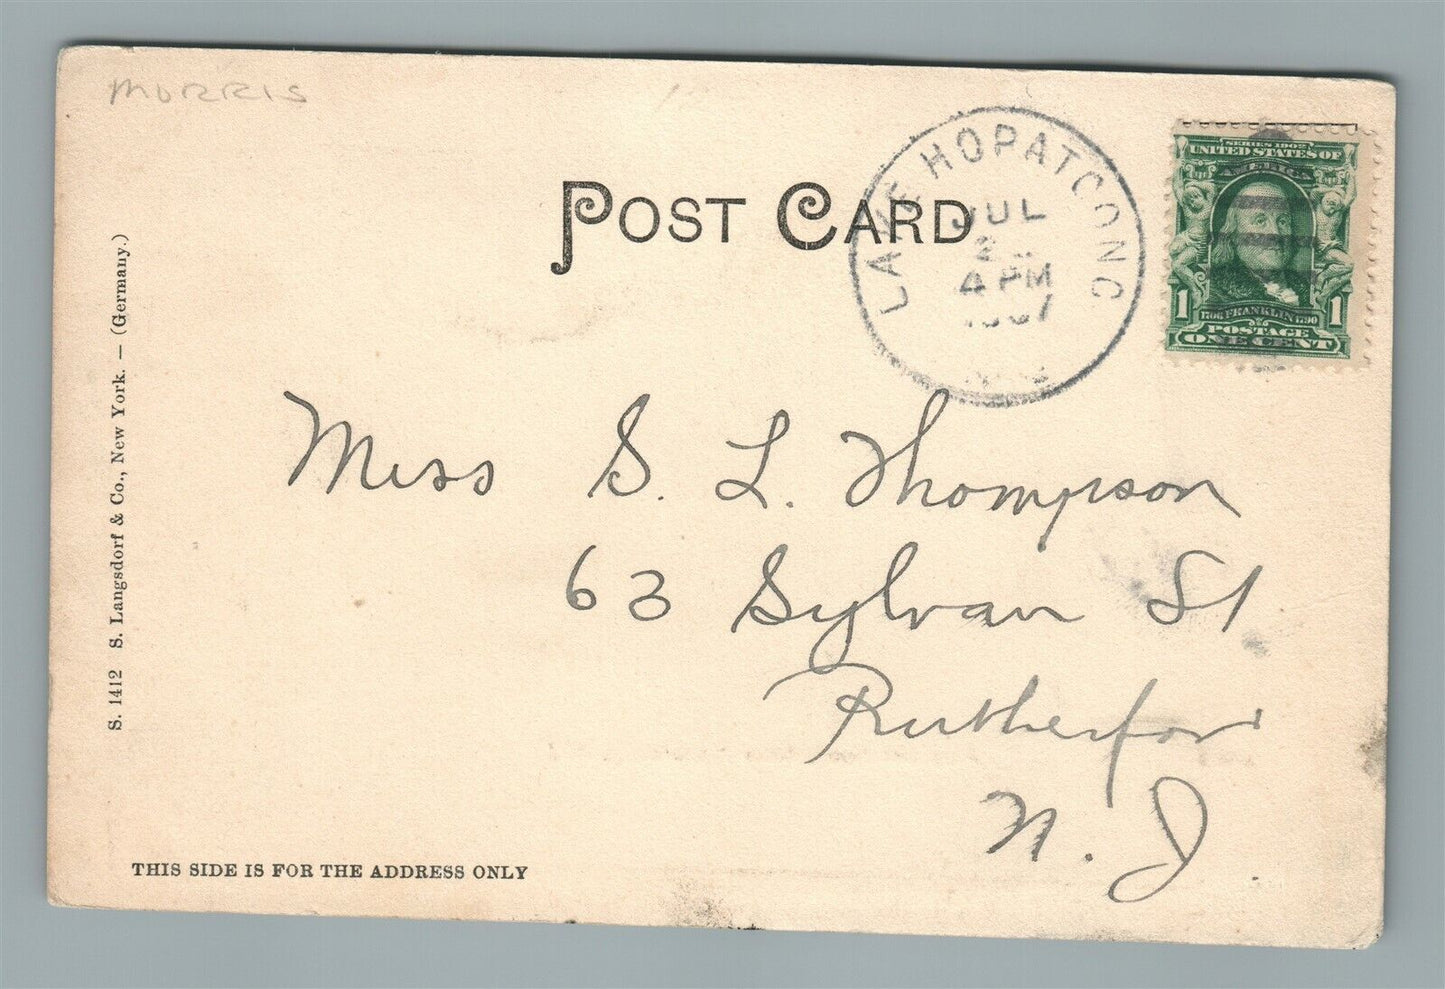 MORRIS
POST CARD
LAKE HOPATCONG
JUL
4 PM
1907
SERIES 1902
UNITED STATES OF
AMERICA
1 1706 FRANKLIN 1790 1
POSTAGE
ONE CENT
Miss S. L. Thompson
63 Sylvan St
Rutherford
N. J.
S. 1412 S. Langsdorf & Co., New York. — (Germany.)
THIS SIDE IS FOR THE ADDRESS ONLY